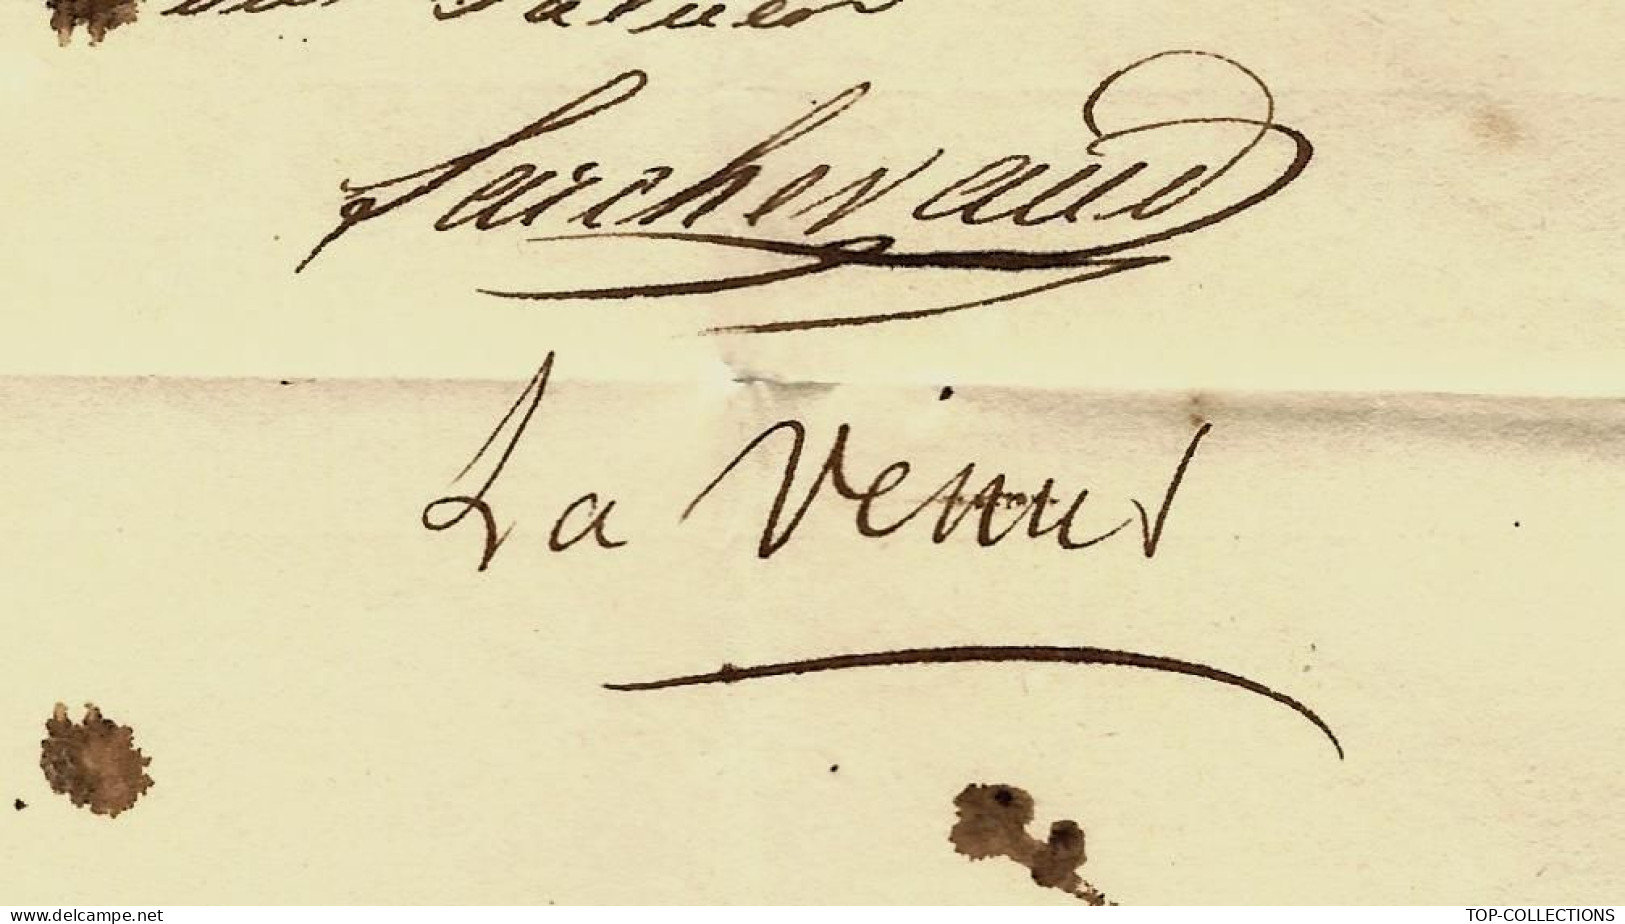 Saluer
Larchevaud
La Venus
www.delcampe.net
TOP-COLLECTIONS